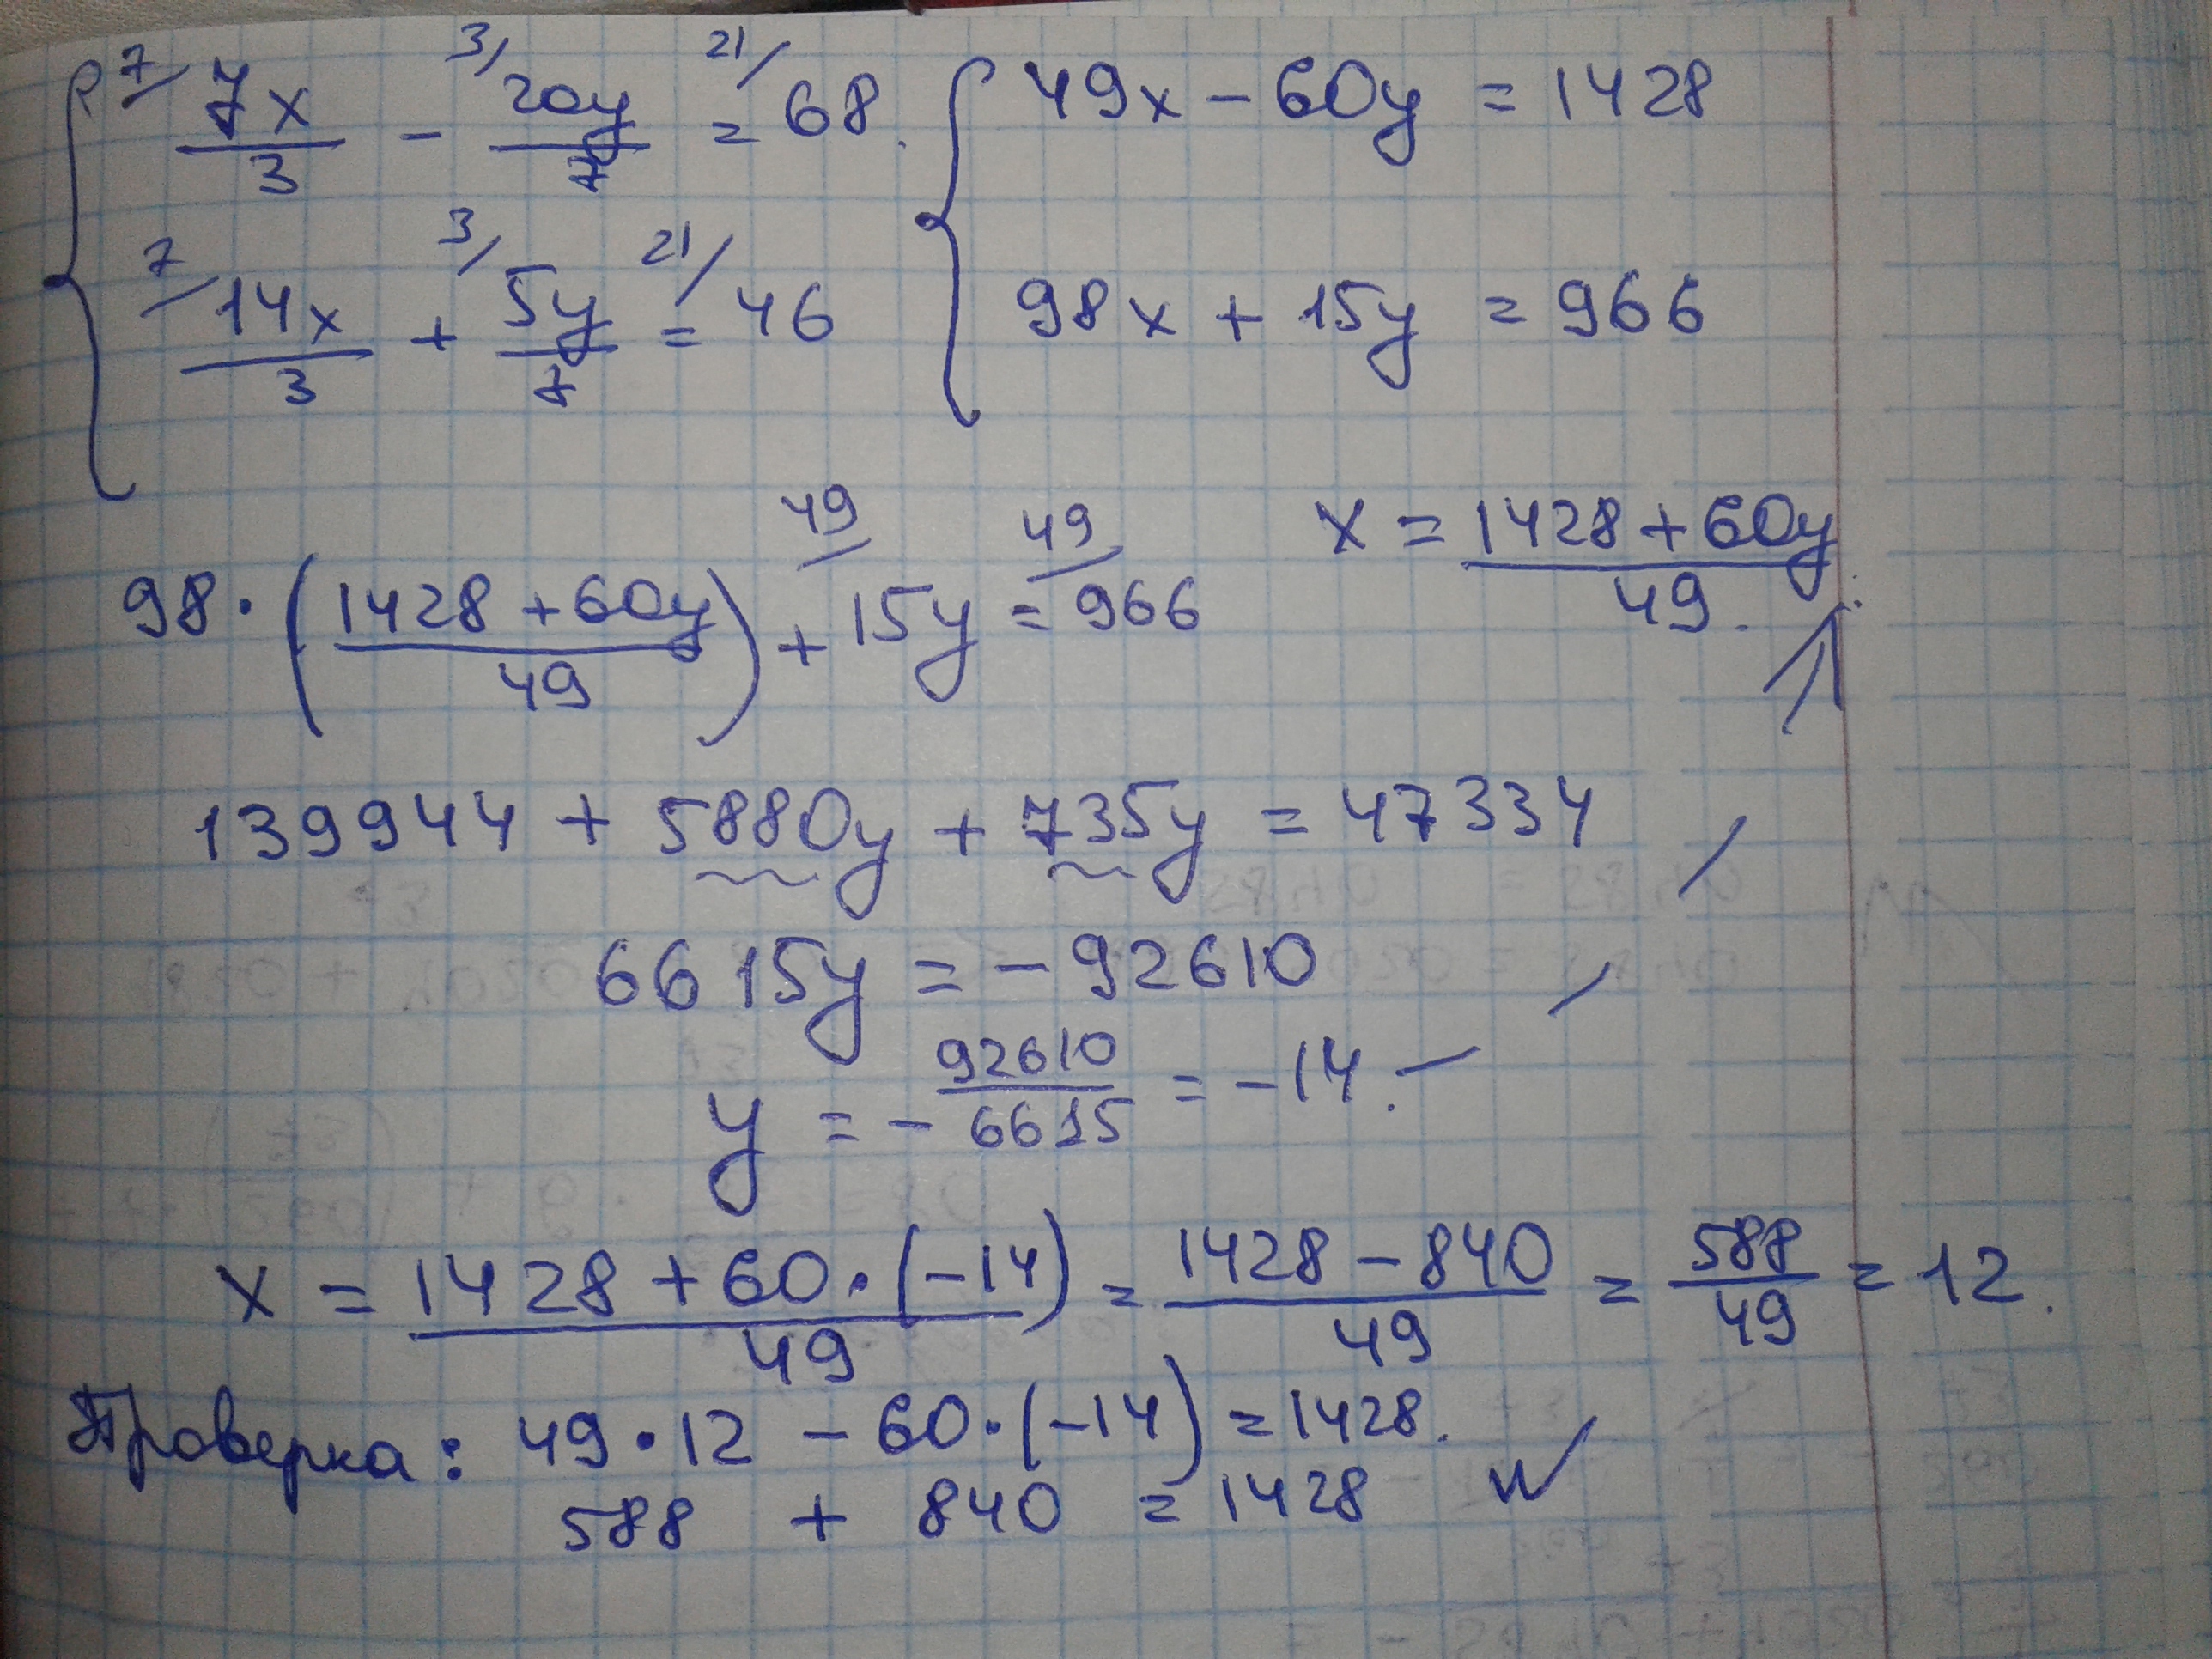 7/ 7x/3 - 3/ 20y/7 = 21/ 68. 49x - 60y = 1428
7/ 14x/3 + 3/ 5y/7 = 21/ 46 98x + 15y = 966
98 · ((1428 + 60y)/49) + 49/ 15y = 49/ 966 x = (1428 + 60y)/49.
139944 + 5880y + 735y = 47334
6615y = -92610
y = - 92610/6615 = -14.
x = (1428 + 60 · (-14))/49 = (1428 - 840)/49 = 588/49 = 12.
Проверка: 49 · 12 - 60 · (-14) = 1428.
588 + 840 = 1428